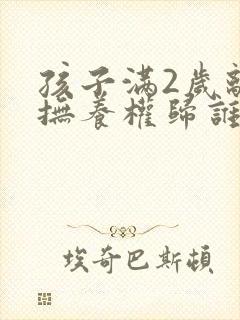 孩子滿2歲離
撫養權歸誰
埃奇巴斯頓